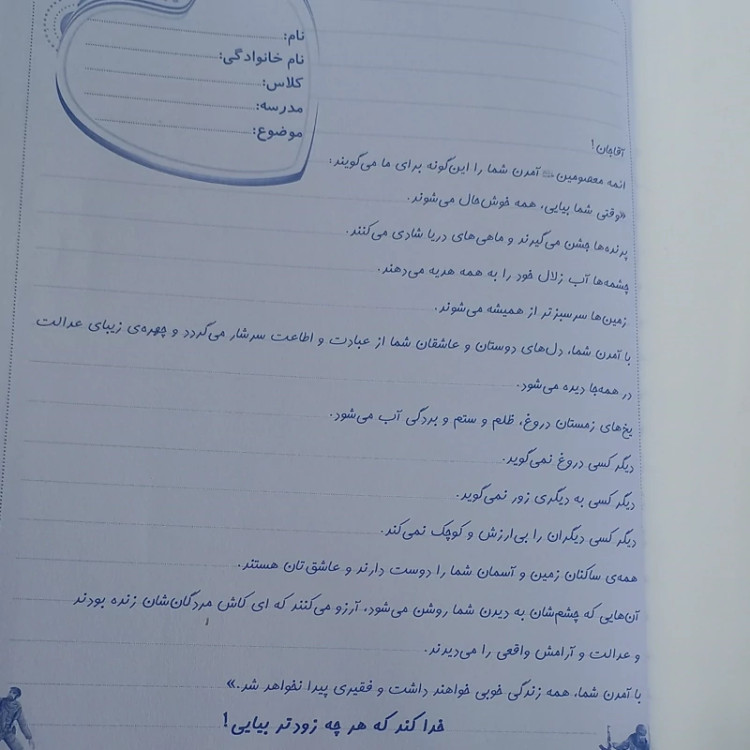 نام:
نام خانوادگی:
کلاس:
مدرسه:
موضوع:
آقاجان!
ائمه معصومین آمدن شما را این‌گونه برای ما می‌گویند:
«وقتی شما بیایی، همه خوش‌حال می‌شوند.
پرنده‌ها جشن می‌گیرند و ماهی‌های دریا شادی می‌کنند.
چشمه‌ها آب زلال خود را به همه هدیه می‌دهند.
زمین‌ها سرسبزتر از همیشه می‌شوند.
با آمدن شما، دل‌های دوستان و عاشقان شما از عبادت و اطاعت سرشار می‌گردد و چهره‌ی زیبای عدالت
در همه‌جا دیده می‌شود.
یخ‌های زمستان دروغ، ظلم و ستم و بردگی آب می‌شود.
دیگر کسی دروغ نمی‌گوید.
دیگر کسی به دیگری زور نمی‌گوید.
دیگر کسی دیگران را بی‌ارزش و کوچک نمی‌کند.
همه‌ی ساکنان زمین و آسمان شما را دوست دارند و عاشق‌تان هستند.
آن‌هایی که چشم‌شان به دیدن شما روشن می‌شود، آرزو می‌کنند که ای کاش مردگان‌شان زنده بودند
و عدالت و آرامش واقعی را می‌دیدند.
با آمدن شما، همه زندگی خوبی خواهند داشت و فقیری پیدا نخواهد شد.»
خدا کند که هر چه زودتر بیایی!